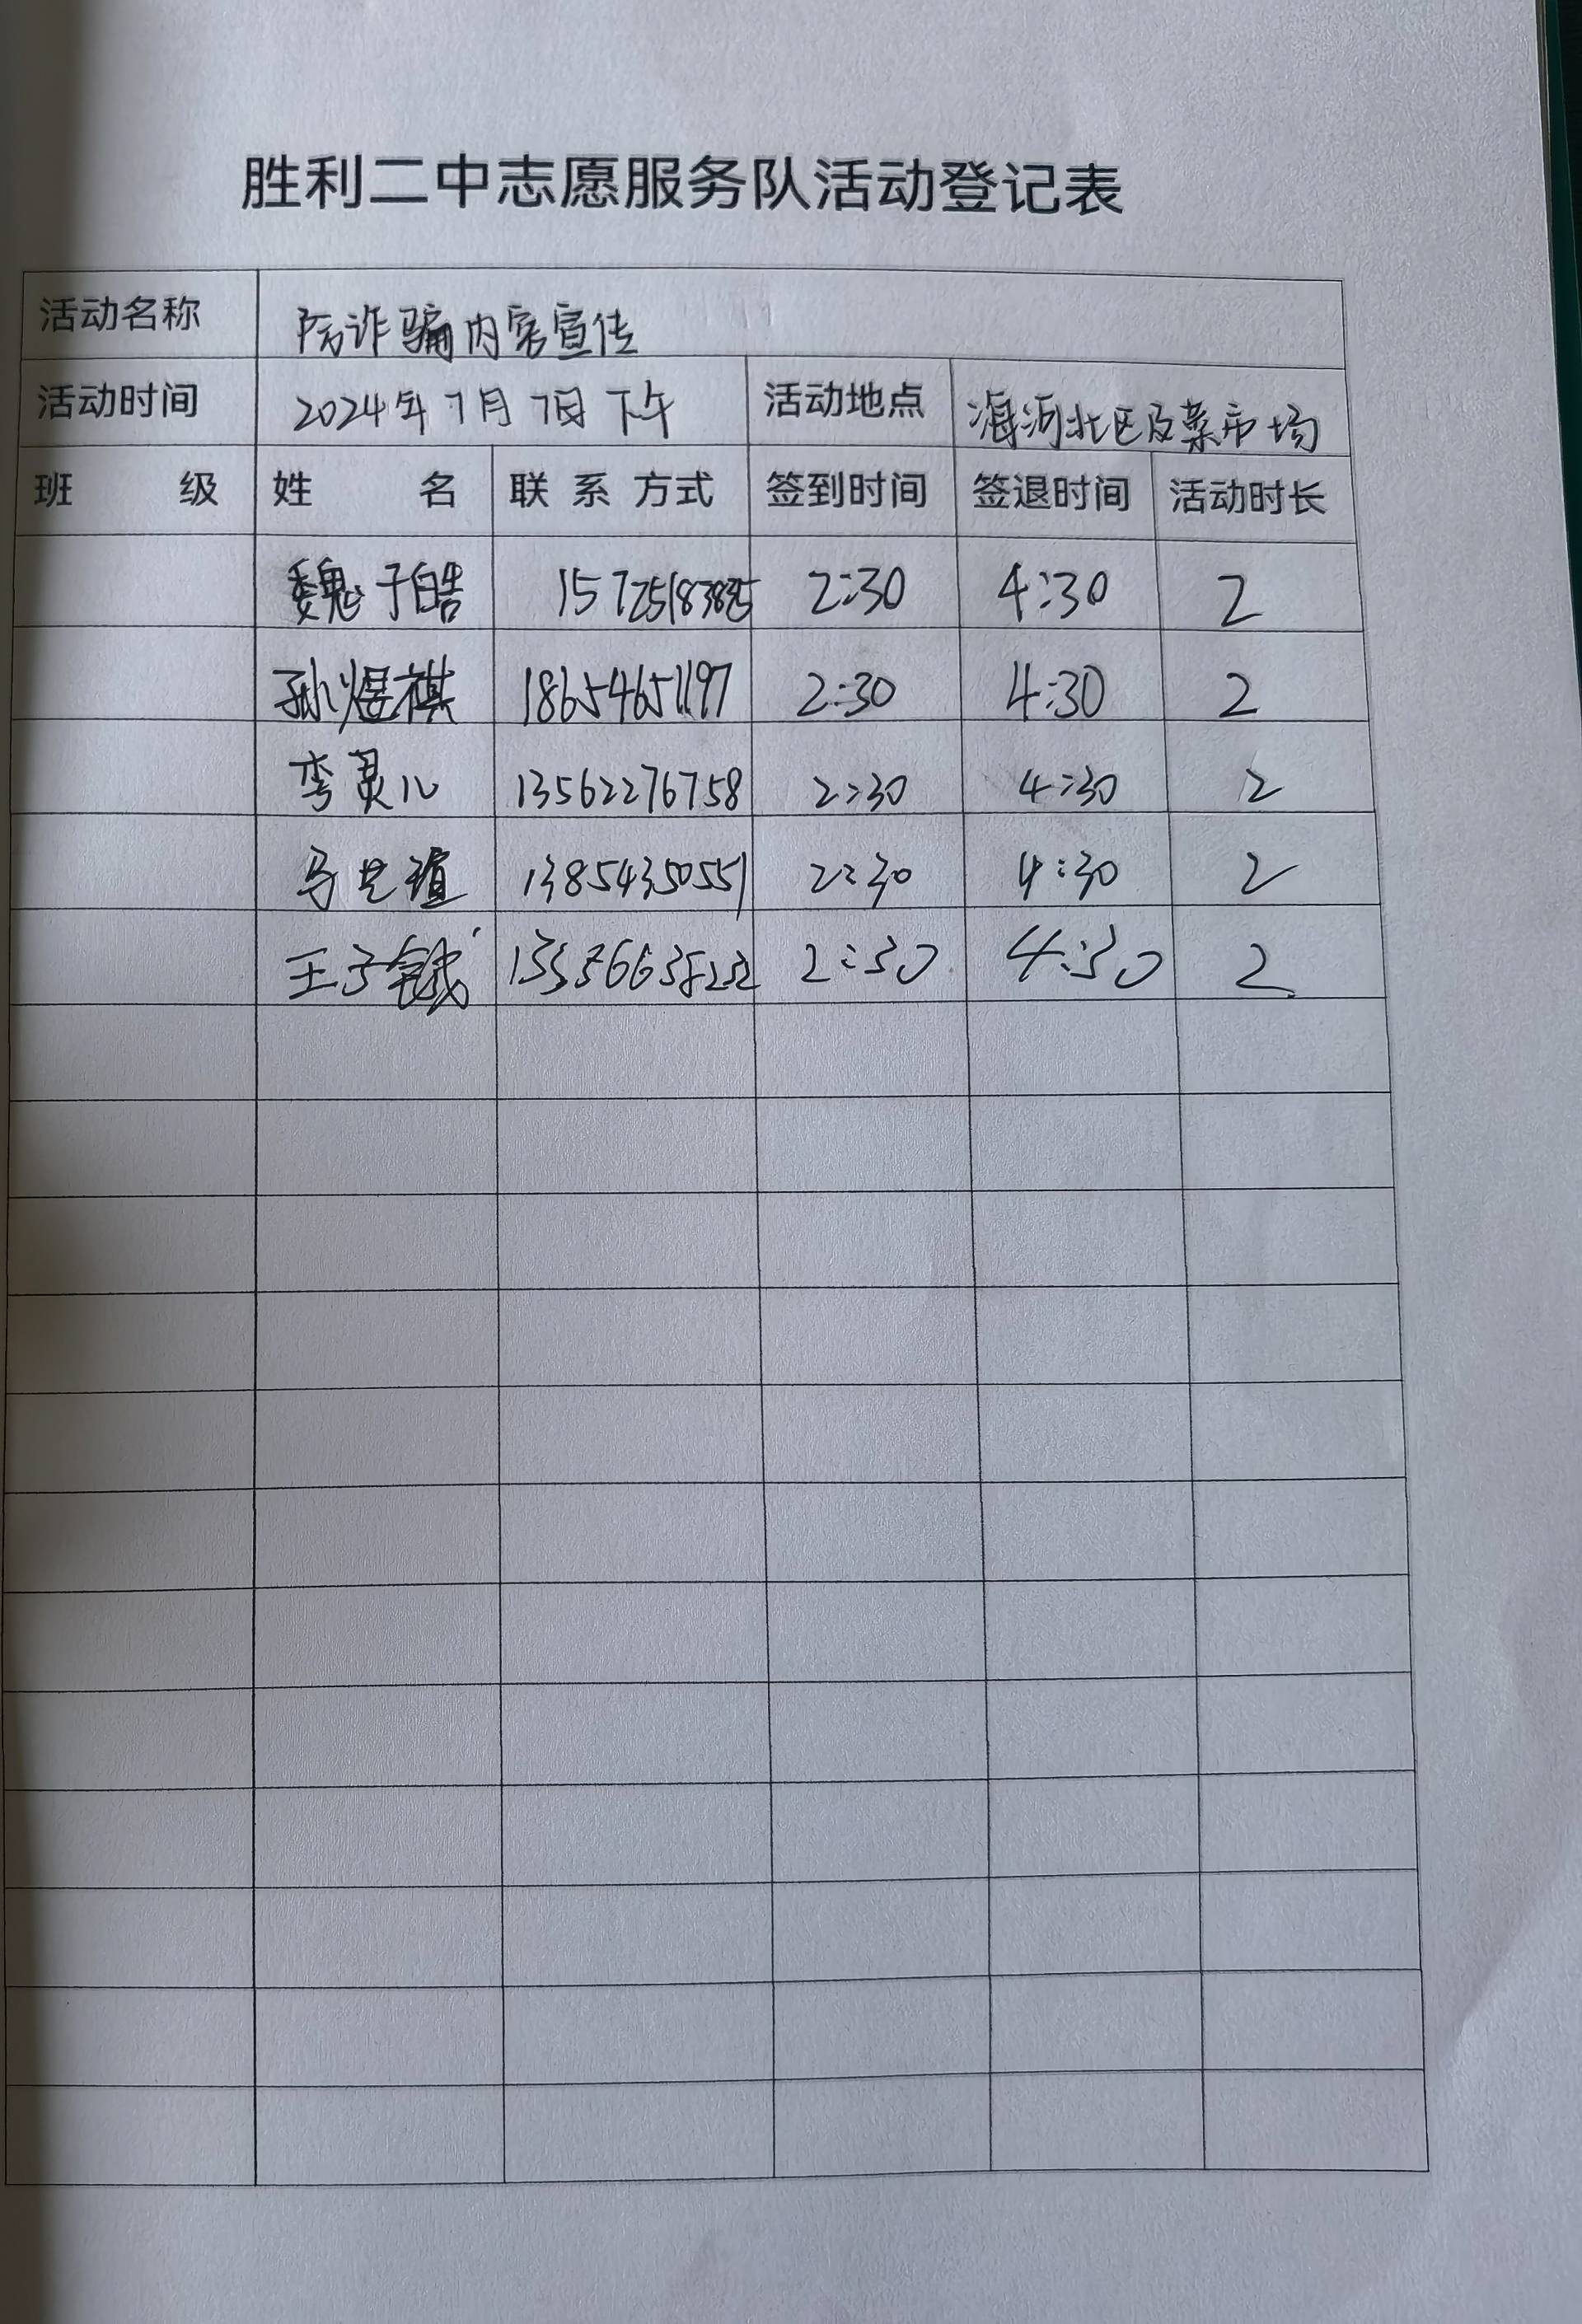 胜利二中志愿服务队活动登记表
活动名称 防诈骗内容宣传
活动时间 2024年7月7日下午 活动地点 海河北区及菜市场
班 级 姓 名 联系方式 签到时间 签退时间 活动时长
魏于皓 2:30 4:30 2
孙煜祺 18654651197 2:30 4:30 2
李灵儿 13562276758 2:30 4:30 2
马 瑄 13854350551 2:30 4:30 2
王子 2:30 4:30 2